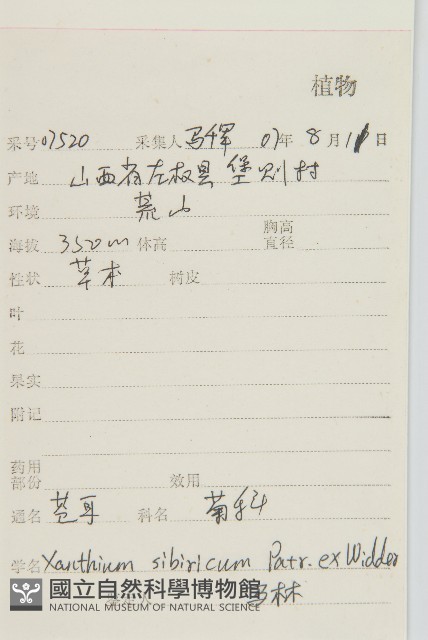 植物
采号 07520 采集人 马铎 07年 8月11日
产地 山西省左权县堡则村
环境 荒山
海拔 3520m 体高 胸高直径
性状 草本 树皮
叶
花
果实
附记
药用部份 效用
通名 苍耳 科名 菊科
学名 Xanthium sibiricum Patr. ex Widder
國立自然科學博物館
NATIONAL MUSEUM OF NATURAL SCIENCE
马林